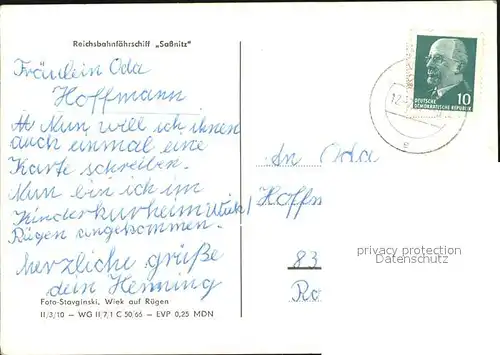 Reichsbahnfährschiff „Saßnitz"
Fräulein Oda
Hoffmann
Nun will ich ihnen
auch einmal eine
Karte schreiben.
Nun bin ich im
Kinderkurheim Wiek/
Rügen angekommen.
herzliche grüße
dein Henning
Foto-Stavginski, Wiek auf Rügen
II/3/10 – WG II/7/1 C 50/66 – EVP 0,25 MDN
10
DEUTSCHE
DEMOKRATISCHE REPUBLIK
12
An Oda
Hoffm
83
Ro
privacy protection
Datenschutz